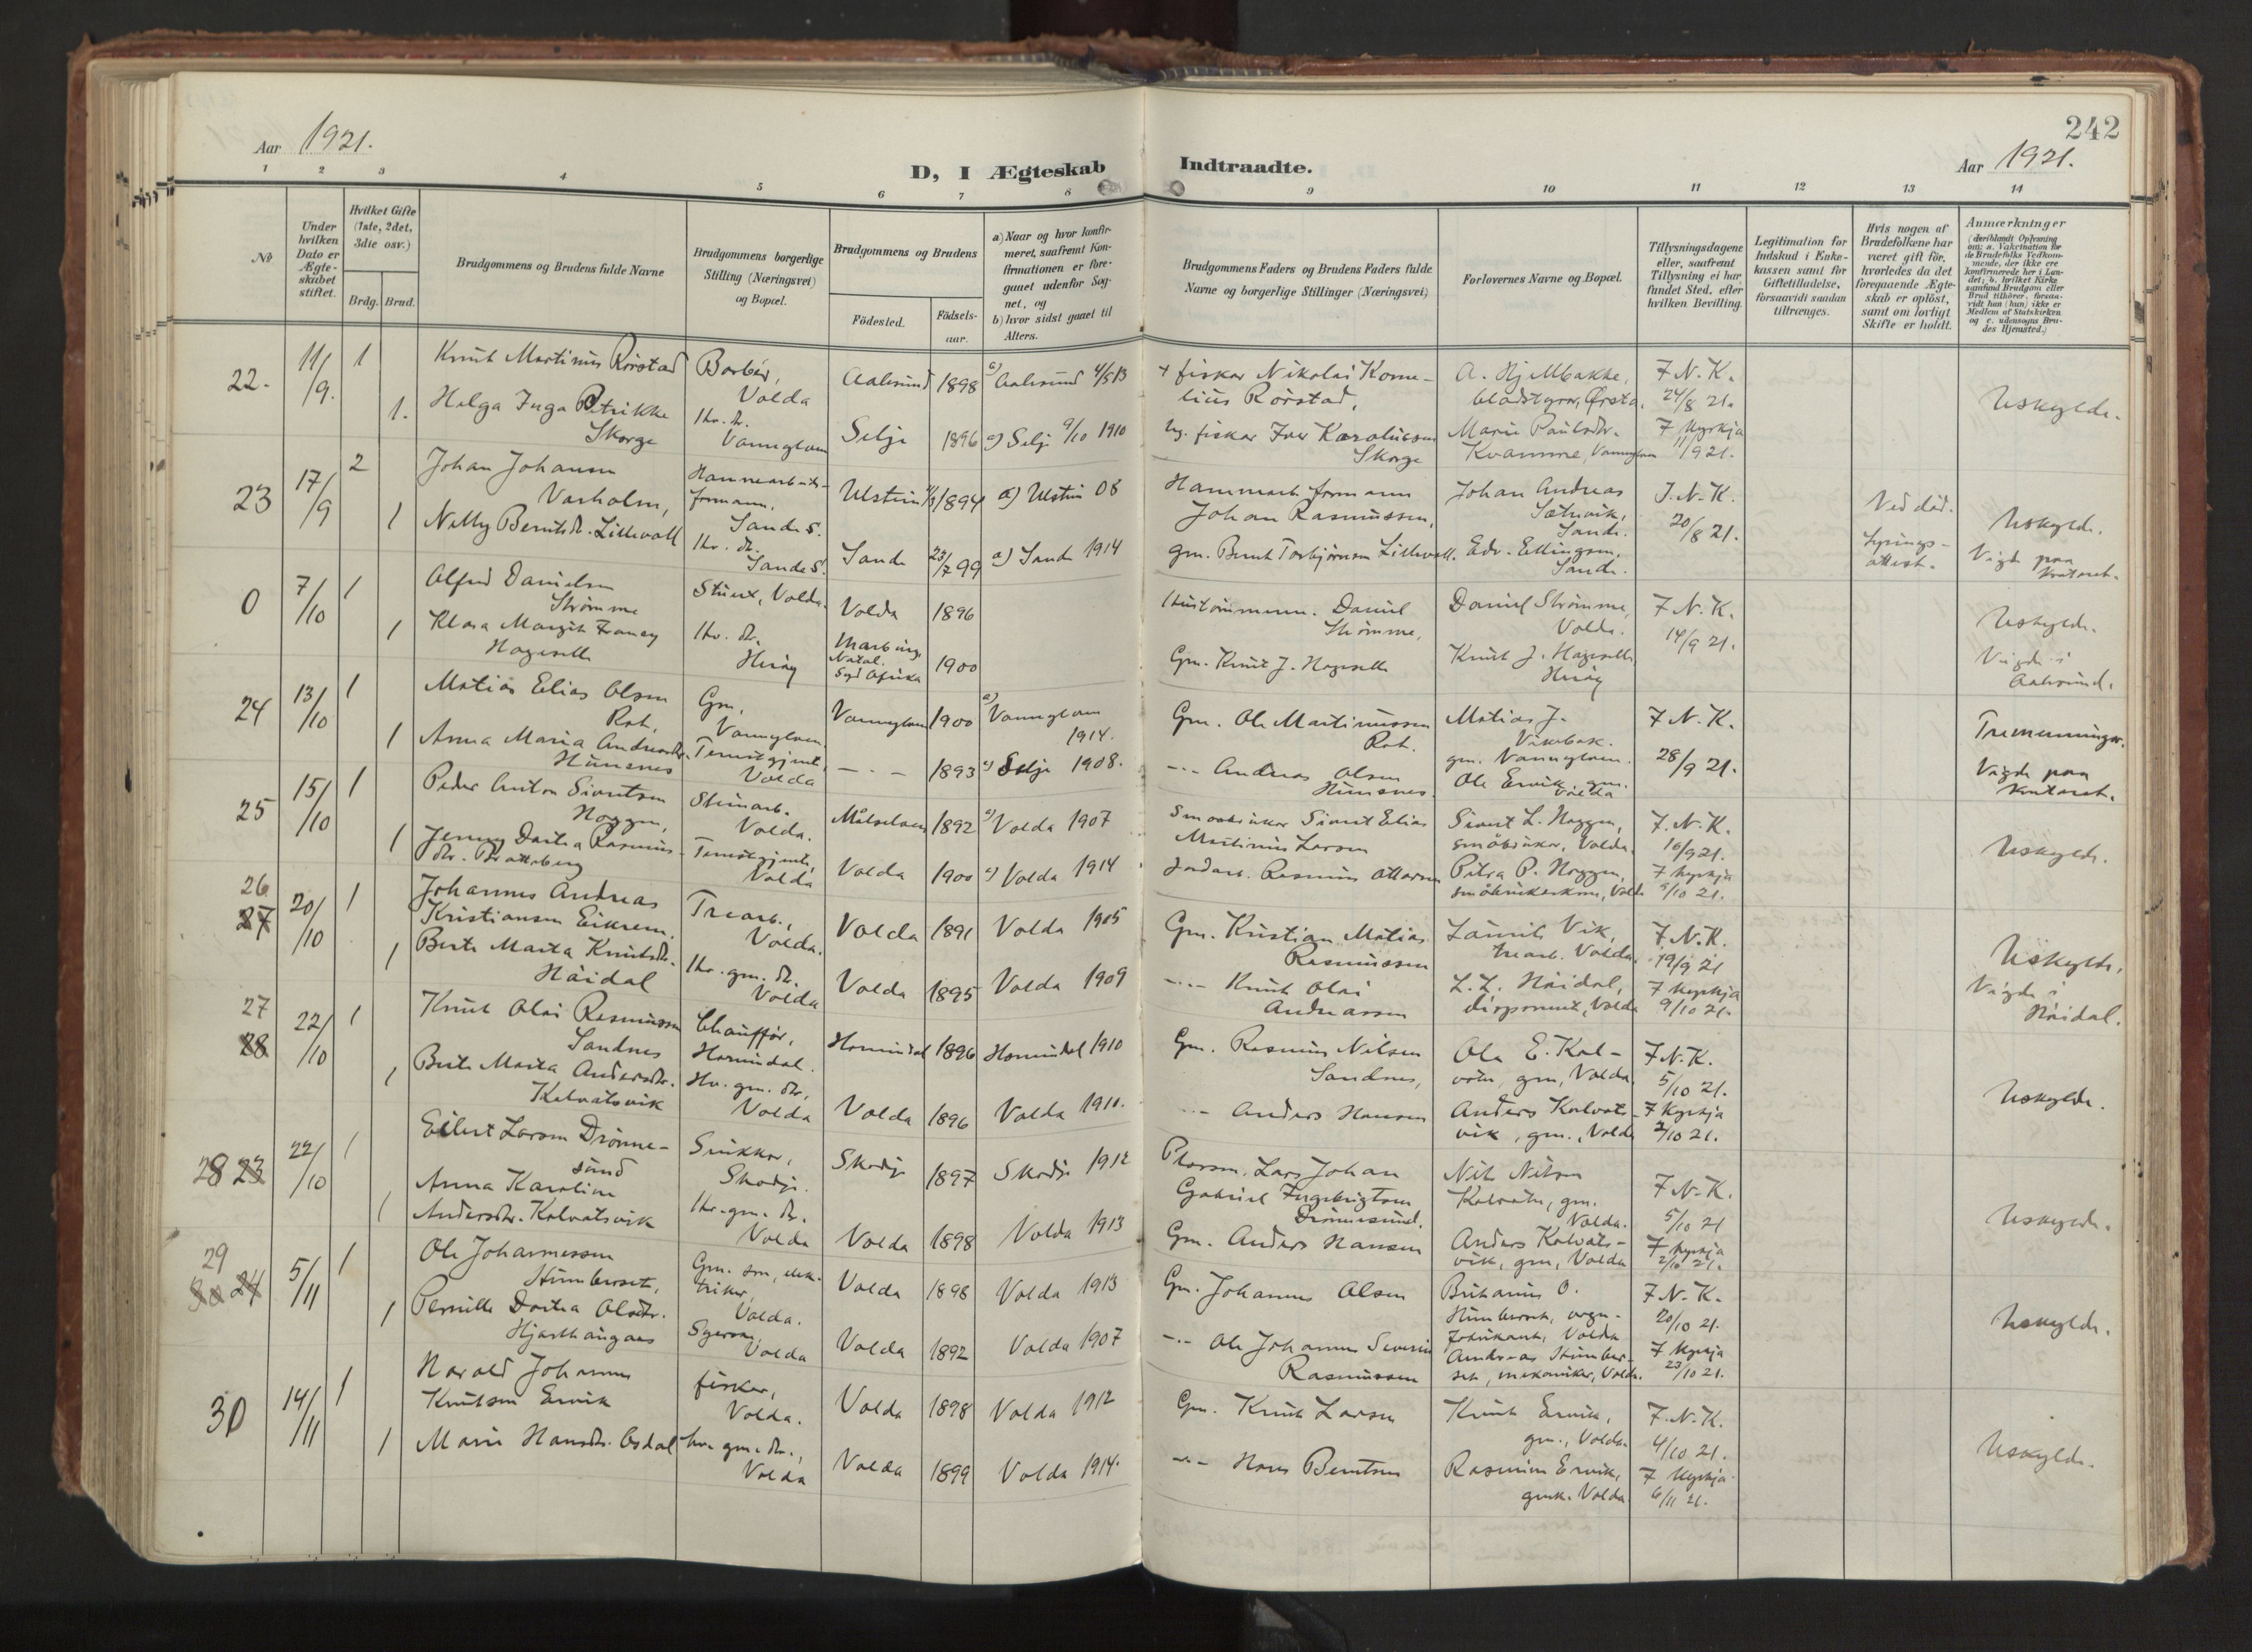 242
Aar 1921.
D, I Ægteskab Indtraadte.
Aar 1921.
1 2 3 4 5 6 7 8 9 10 11 12 13 14
No
Under hvilken Dato er Ægte-skabet stiftet.
Hvilket Gifte (1ste, 2det, 3die osv.)
Brdg. Brud.
Brudgommens og Brudens fulde Navne
Brudgommens borgerlige Stilling (Næringsvei) og Bopæl.
Brudgommens og Brudens
Födested.
Födsels-aar.
a) Naar og hvor konfir-meret, saafremt Kon-firmationen er fore-gaaet udenfor Sog-net, og
b) hvor sidst gaaet til Alters.
Brudgommens Faders og Brudens Faders fulde Navne og borgerlige Stillinger (Næringsvei)
Forlovernes Navne og Bopæl.
Tillysningsdagene eller, saafremt Tillysning ei har fundet Sted, efter hvilken Bevilling.
Legitimation for Indskud i Enke-kassen samt for Giftetilladelse, forsaavidt saadan tiltrænges.
Hvis nogen af Brudefolkene har været gift för, hvorledes da det foregaaende Ægte-skab er oplöst, samt om lovligt Skifte er holdt.
Anmærkninger
(deriblandt Oplysning om: a. Vakcination for de Brudefolks Vedkom-mende, der ikke ere konfirmerede her i Lan-det; b. hvilket Kirke samfund Brudgom eller Brud tilhörer, forsaa-vidt han (hun) ikke er Medlem af Statskirken og c. udensogns Bru-des Hjemsted.)
22. 11/9. 1 Knut Martinus Rörstad Barber, Volda Aalesund 1898 a) Aalesund 4/5 13 + fisker Nikolai Korne-lius Rörstad, A. Hjellbakke, bladstyrar, Ørsta. F.N.K. 24/8 21. Uskylde.
1. Helga Inga Petrikke Skorge Hv. dr. Vannylven Selje 1896 a) Selje 9/10 1910 fisker Iver Karolussen Skorge Marie Paulsdtr. Kvamme, Vannylven F Kyrkja 11/9 21.
23 17/9 2 Johan Johansen Varholm, Hamnearbeids-formann, Sande S. Ulstein 1894 a) Ulstein 08 Hamnearb. formann Johan Rasmussen, Johan Andreas Sætrevik, Sande. F.N.K. 20/8 21. Ved död. Uskylde.
1 Nelly Berntsdr. Lillevoll Hv. dr. Sande S. Sande 23/7 99 a) Sande 1914 gm. Bernt Torbjörnsen Lillevoll. Edv. Ellingsen, Sande. Lysings-attest. Vigde paa kontoret.
0 7/10 1 Alfred Danielsen Strömme Stuert, Volda. Volda 1896 Daniel Strömme, Daniel Strömme, Volda. F.N.K. 14/9 21. Uskylde.
1 Klara Margit Franey Hageselle Hv. dr. Heröy Natal. Syd Afrika 1900 Gm. Knut J. Hageselle Knut J. Hageselle Heröy Vigde i Aalesund.
24 13/10 1 Matias Elias Olsen Rot, Gm, Vannylven. Vannylven 1900 a) Vannylven 1914. Gm. Ole Martinussen Rot. Matias J. Vikebak. gm. Vannylven. F.N.K. 28/9 21. Tremenninger.
1 Anna Maria Andreasdr. Hunsnes Tenestgjente, Volda -"- 1893 a) Selje 1908. -"- Andreas Olsen Hunsnes. Ole Ervik gm. Volda Vigde paa kontoret.
25 15/10 1 Peder Anton Sivertsen Noggen, Steinarb. Volda. Målselven 1892 a) Volda 1907 Smaabrukar Sivert Elias Martinus Larsen Sivert L. Noggen, småbrukar, Volda. F.N.K. 16/9 21. Uskylde.
1 Jenny Dortea Rasmus-dtr. Brattaberg Tenestgjente, Volda Volda 1900 a) Volda 1914 Jordarb. Rasmus Ottarsen Petra P. Noggen, småbrukarkone, Volda F Kyrkja 9/10 21.
26 27 20/10 1 Johannes Andreas Kristiansen Eikrem. Trearb., Volda. Volda 1891 Volda 1905 Gm. Kristian Matias Rasmussen Laurits Vik, trearb. Volda. F.N.K. 19/9 21 Uskylde.
1 Berte Marta Knutsdtr. Höidal Hv. gm. dr. Volda Volda 1895 Volda 1909 -"- Knut Olai Andreassen L. L. Höidal, disponent, Volda F Kyrkja 9/10 21. Vigde i Höidal.
27 28 22/10 1 Knut Olai Rasmussen Sandnes Chauffør, Hornindal. Hornindal 1896 Hornindal 1910 Gm. Rasmus Nilsen Sandnes, Ole E. Kal-vatn, gm, Volda. F.N.K. 5/10 21. Uskylde.
1 Berte Marta Andersdtr. Kalvatsvik Hv. gm. dtr, Volda Volda 1896 Volda 1910. -"- Anders Hansen Anders Kalvats-vik, gm., Volda F Kyrkja 2/10 21.
28 23 22/10 1 Eilert Larsen Drönne-sund Snikkar, Skodje. Skodje 1897 Skodje 1912 Lars Johan Gabriel Ingebrigtsen Drönnesund. Nils Nilsen Kalvatn, gm. Volda. F.N.K. 5/10 21 Uskylde.
1 Anna Karoline Andersdtr. Kalvatsvik Hv. gm. dr. Volda Volda 1898 Volda 1913 Gm. Anders Hansen Anders Kalvats-vik, gm, Volda F Kyrkja 2/10 21.
29 30 24 5/11 1 Ole Johannessen Humberset, Gm. son, elek-triker, Volda. Volda 1898 Volda 1913 Gm. Johannes Olsen O. Humberset, vogn-fabrikant, Volda F.N.K. 20/10 21. Uskylde.
1 Pernille Dortea Olsdtr. Hjarthaugaas Syerske, Volda Volda 1892 Volda 1907 -"- Ole Johannes Severin Rasmussen Andreas Humber-set, mekaniker, Volda. F Kyrkja 23/10 21.
30 14/11 1 Harald Johannes Knutsen Ervik fisker, Volda. Volda 1898 Volda 1912 Gm. Knut Larsen Knut Ervik, gm., Volda. F.N.K. 4/10 21. Uskylde.
1 Marie Hansdtr. Osdal hv. gm. dr., Volda Volda 1899 Volda 1914. -"- Hans Berntsen Rasmine Ervik, gmk. Volda. F Kyrkja 6/11 21.